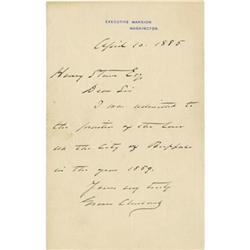 EXECUTIVE MANSION
WASHINGTON
April 10. 1885
Henry Stowe Esq
Dear Sir
I was admitted to
the practice of the Law
in the City of Buffalo
in the year 1859.
Yours very truly
Grover Cleveland